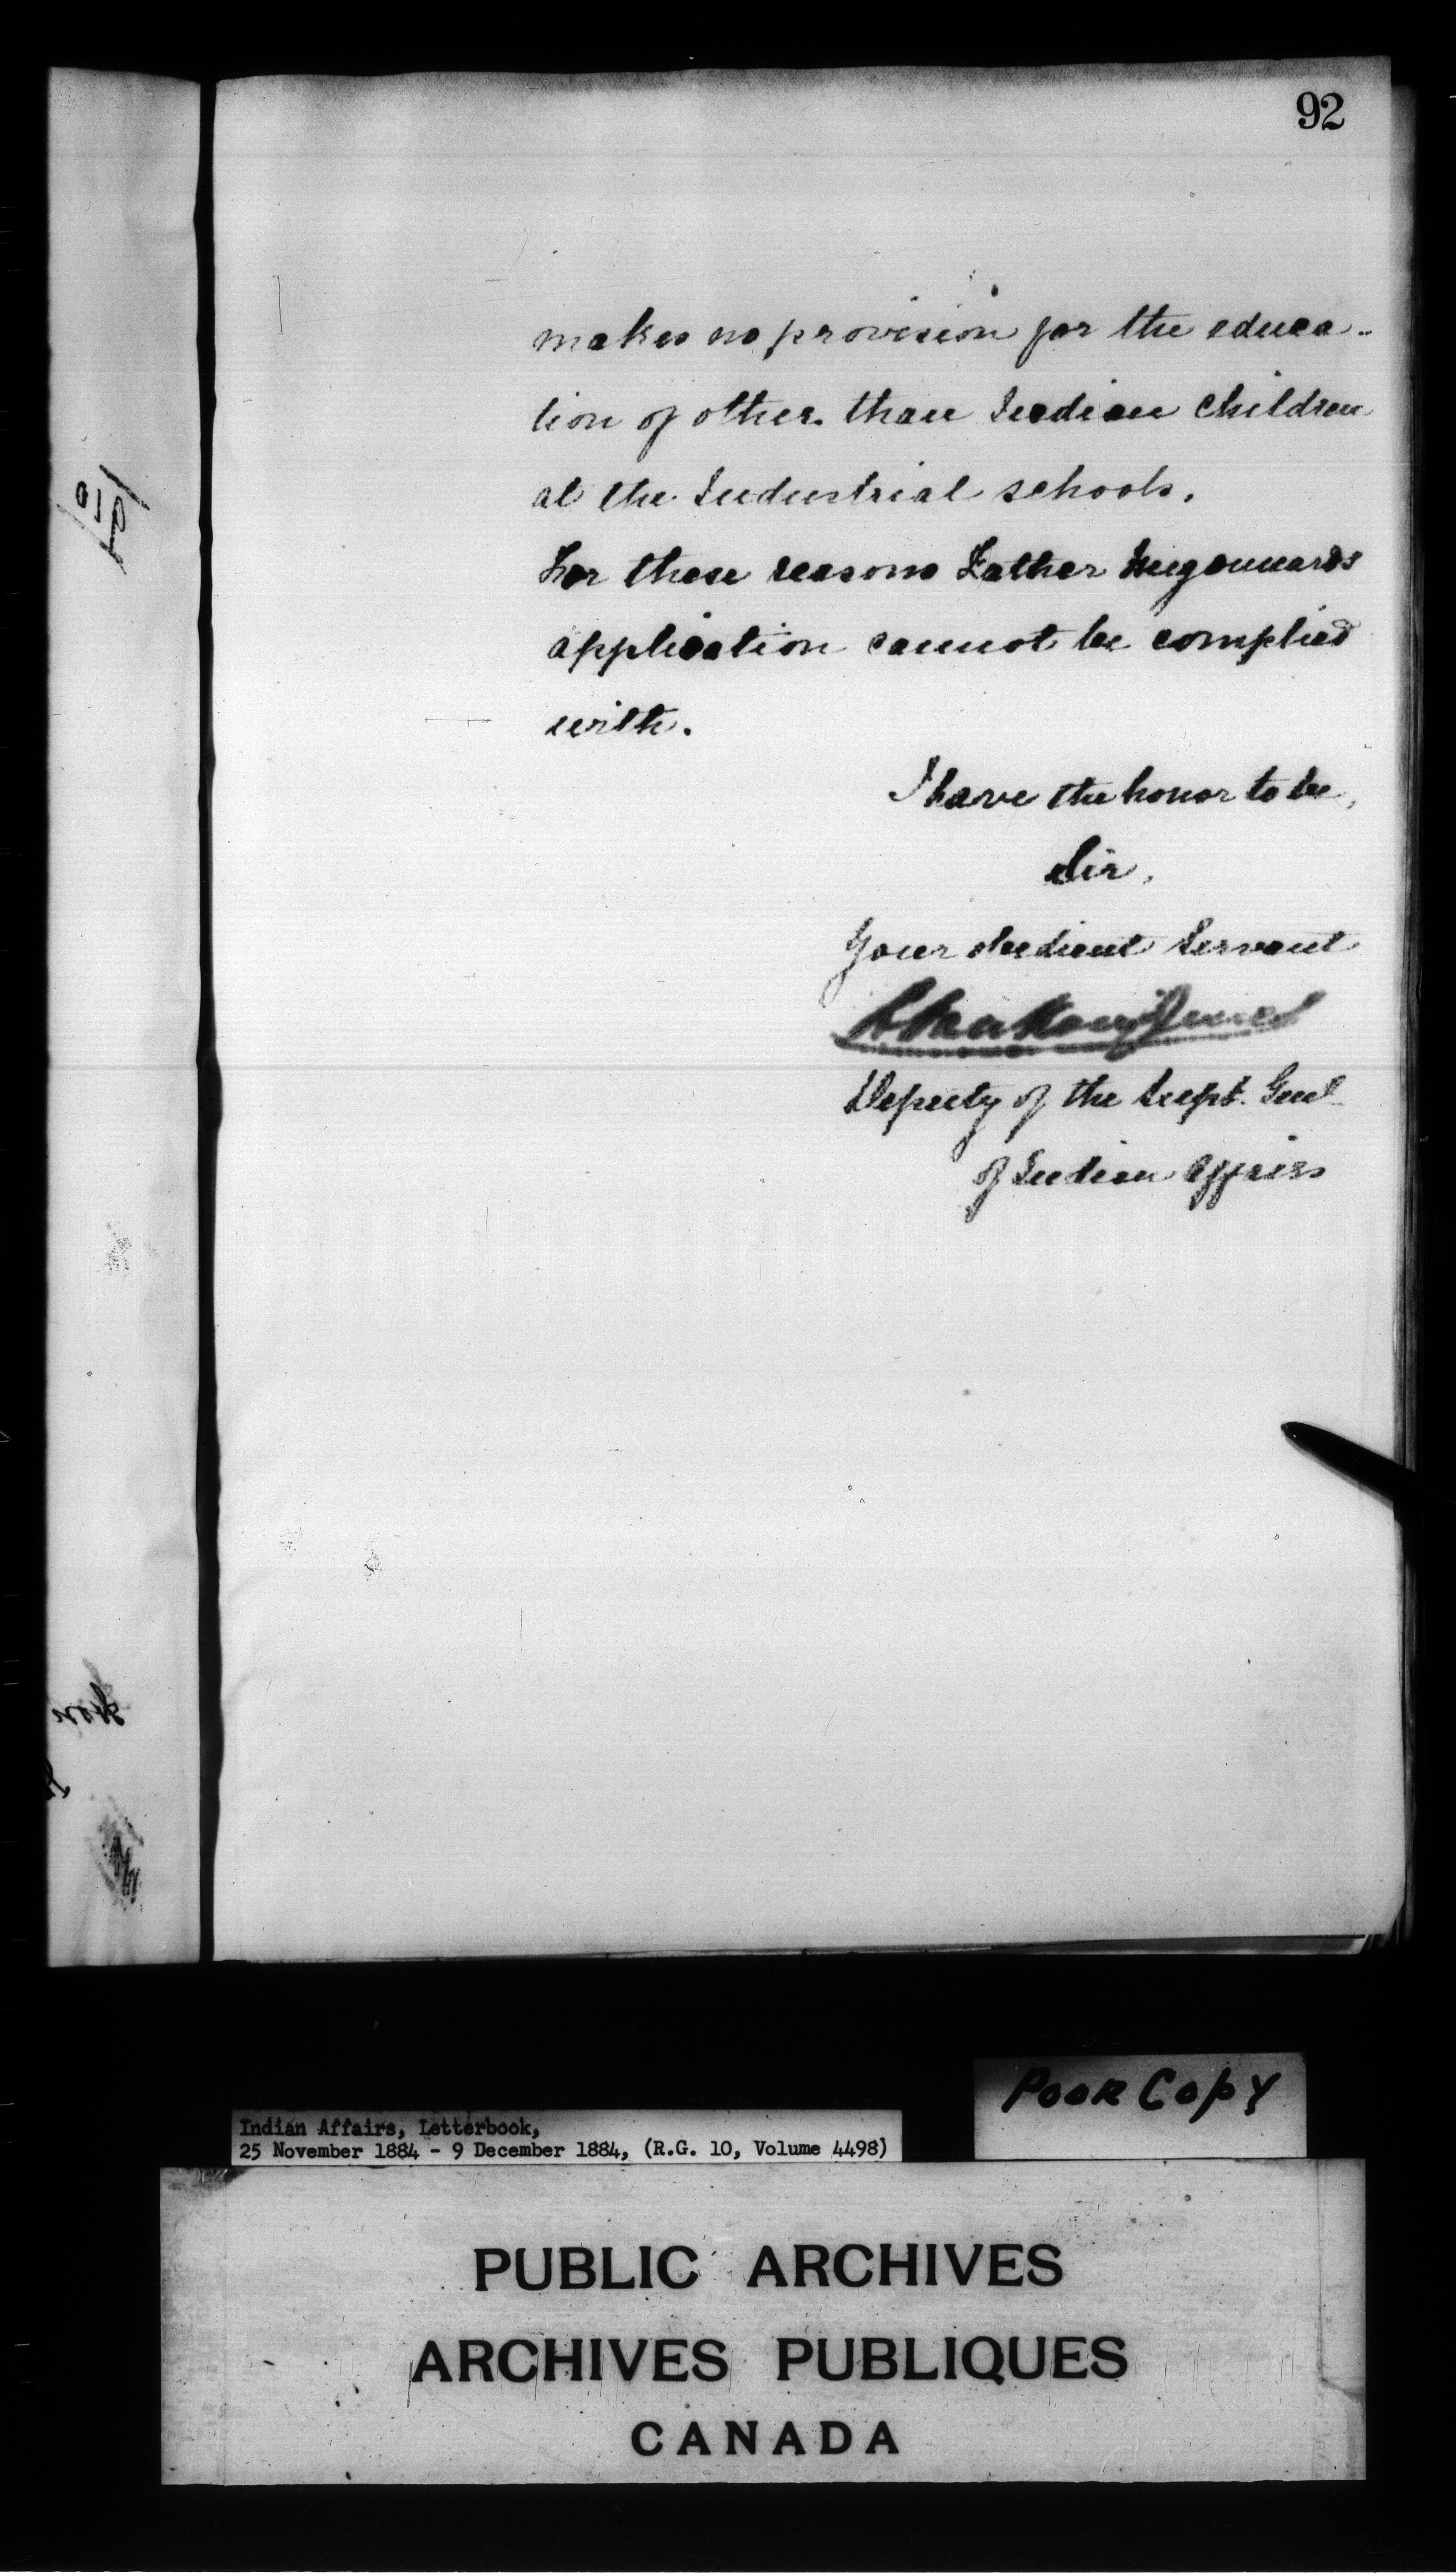 92
makes no provision for the educa-
tion of other than Indian Children
at the Industrial schools.
For these reasons Father Hugonnards
application cannot be complied
with.
I have the honor to be,
Sir,
Your obedient Servant
L VanKoughnet
Deputy of the Supt. Genl
of Indian Affairs
Poor Copy
Indian Affairs, Letterbook,
25 November 1884 - 9 December 1884, (R.G. 10, Volume 4498)
PUBLIC ARCHIVES
ARCHIVES PUBLIQUES
CANADA